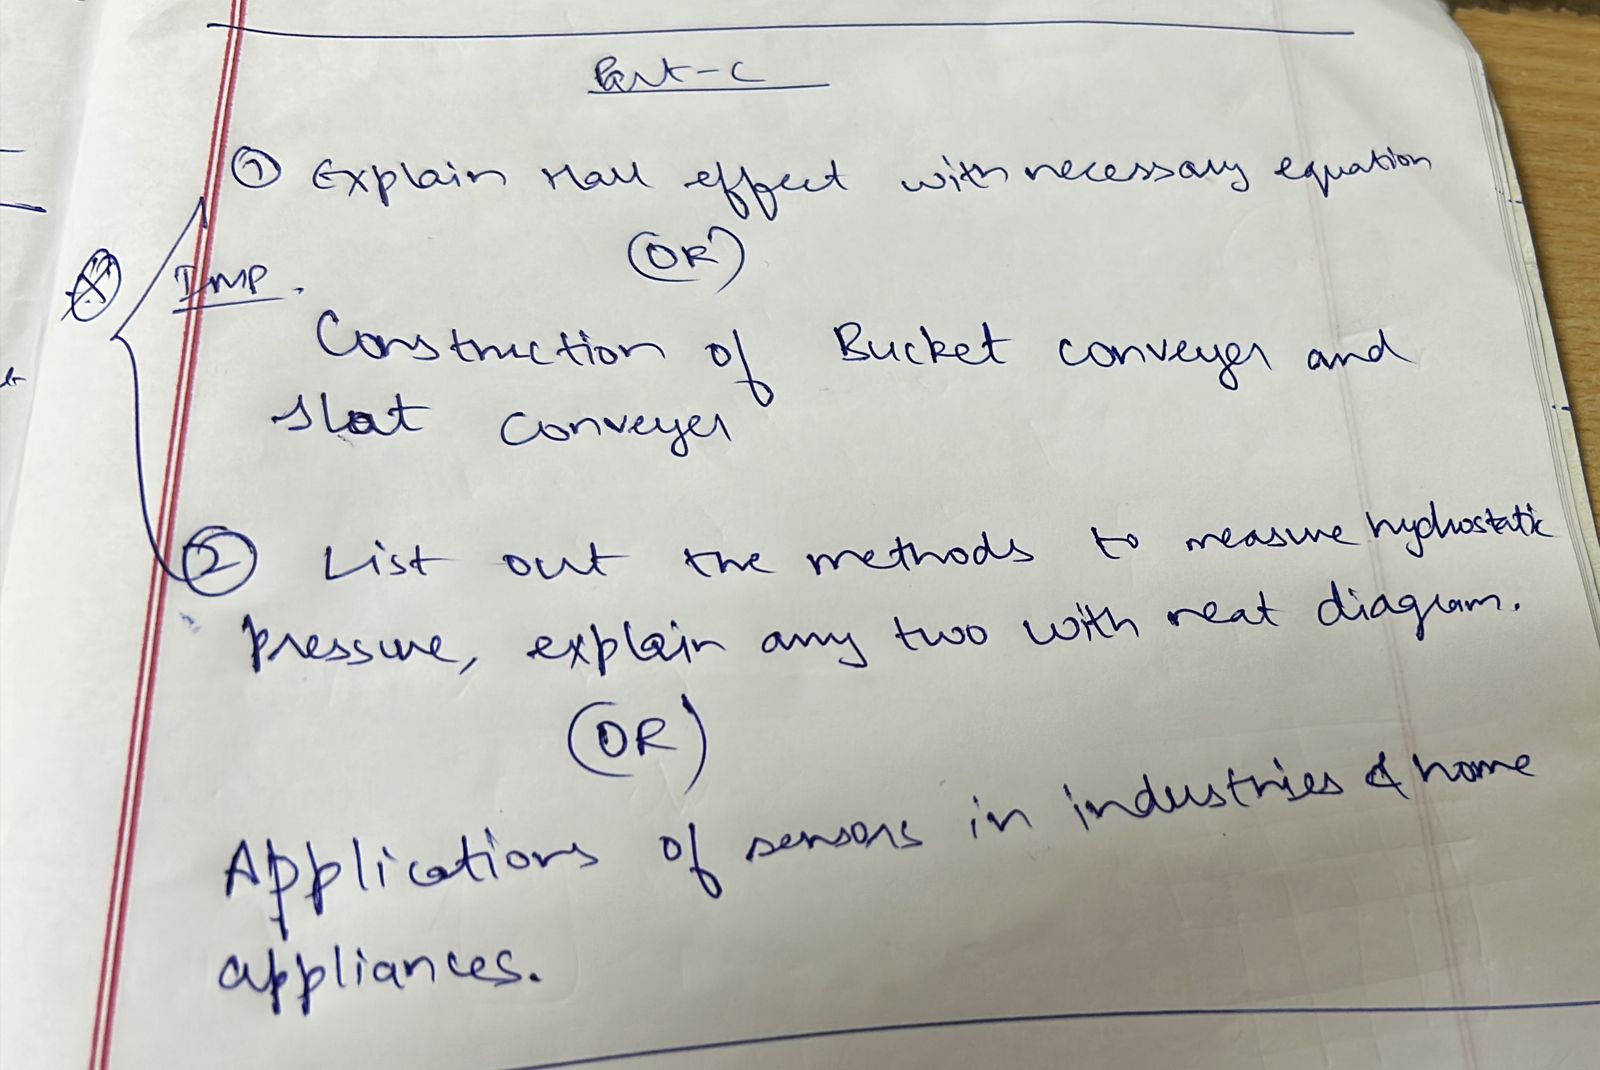 Part-C
① Explain Hall effect with necessary equation
(OR)
IMP.
Construction of Bucket conveyer and
slat conveyer
② List out the methods to measure hydrostatic
pressure, explain any two with neat diagram.
(OR)
Applications of sensors in industries & home
appliances.